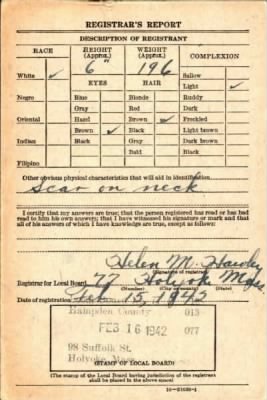 REGISTRAR'S REPORT
DESCRIPTION OF REGISTRANT
RACE HEIGHT (Approx.) WEIGHT (Approx.) COMPLEXION
6" 196
White ✓ EYES HAIR Sallow
Light ✓
Negro Blue Blonde Ruddy
Gray Red Dark
Oriental Hazel Brown ✓ Freckled
Brown ✓ Black Light brown
Indian Black Gray Dark brown
Bald Black
Filipino
Other obvious physical characteristics that will aid in identification
Scar on neck
I certify that my answers are true; that the person registered has read or has had
read to him his own answers; that I have witnessed his signature or mark and that
all of his answers of which I have knowledge are true, except as follows:
Helen M. Hawley
(Signature of registrar)
Registrar for Local Board 77 Holyoke Mass
(Number) (City or county) (State)
Date of registration Feb. 15, 1942
Hampden County 013
FEB 16 1942 077
98 Suffolk St.
Holyoke, Mass.
(STAMP OF LOCAL BOARD)
(The stamp of the Local Board having jurisdiction of the registrant
shall be placed in the above space.)